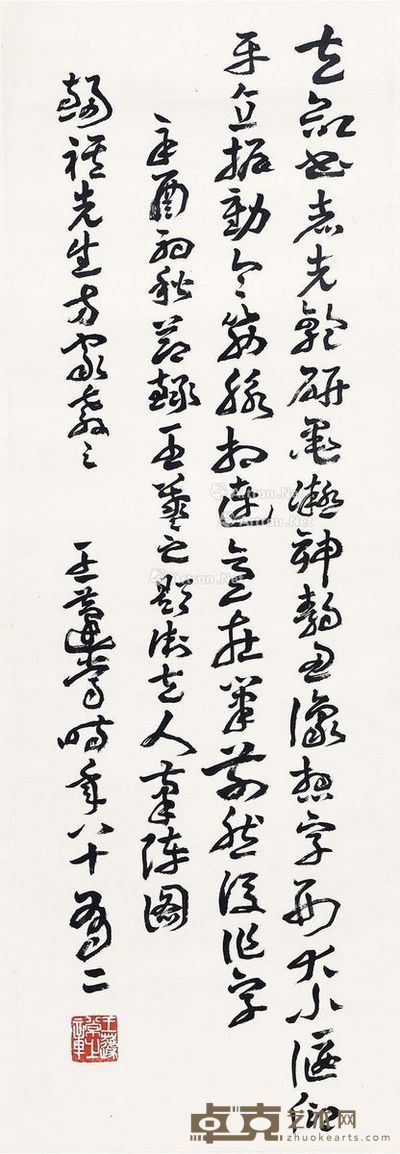 夫欲书者先乾研墨凝神静思預想字形大小偃仰
平直振動令筋脉相连意在筆前然后作字
辛酉初秋節録王羲之題衛夫人筆陣图
先生方家教之
王蘧常時年八十有二
王蘧常
Artron.Net
卓克艺术网
zhuokearts.com